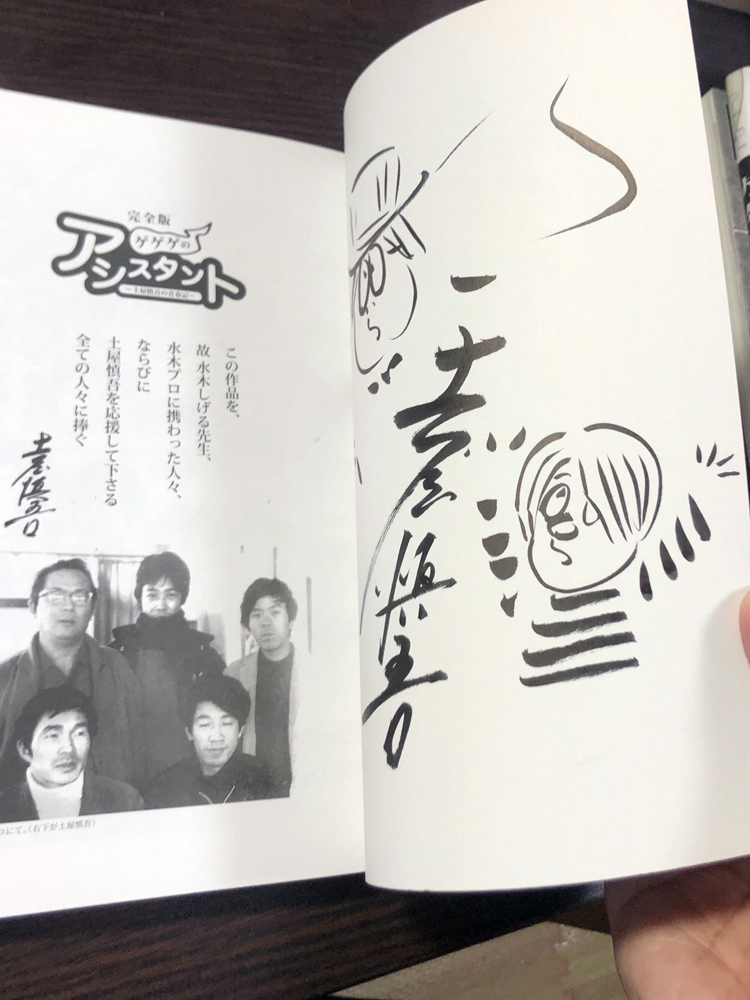 完全版
ゲゲゲの
アシスタント
～土屋慎吾の青春記～
この作品を、
故 水木しげる先生、
水木プロに携わった人々、
ならびに
土屋慎吾を応援して下さる
全ての人々に捧ぐ
土屋慎吾
ロにて。（右下が土屋慎吾）
土屋慎吾